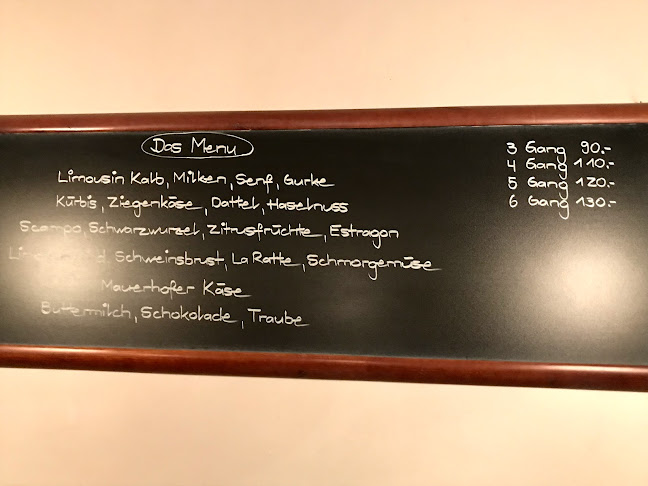 Das Menu
Limousin Kalb, Milken, Senf, Gurke
Kürbis, Ziegenkäse, Dattel, Haselnuss
Scampo, Schwarzwurzel, Zitrusfrüchte, Estragon
Schweinsbrust, La Ratte, Schmorgemüse
Mauerhofer Käse
Buttermilch, Schokolade, Traube
3 Gang 90.-
4 Gang 110.-
5 Gang 120.-
6 Gang 130.-